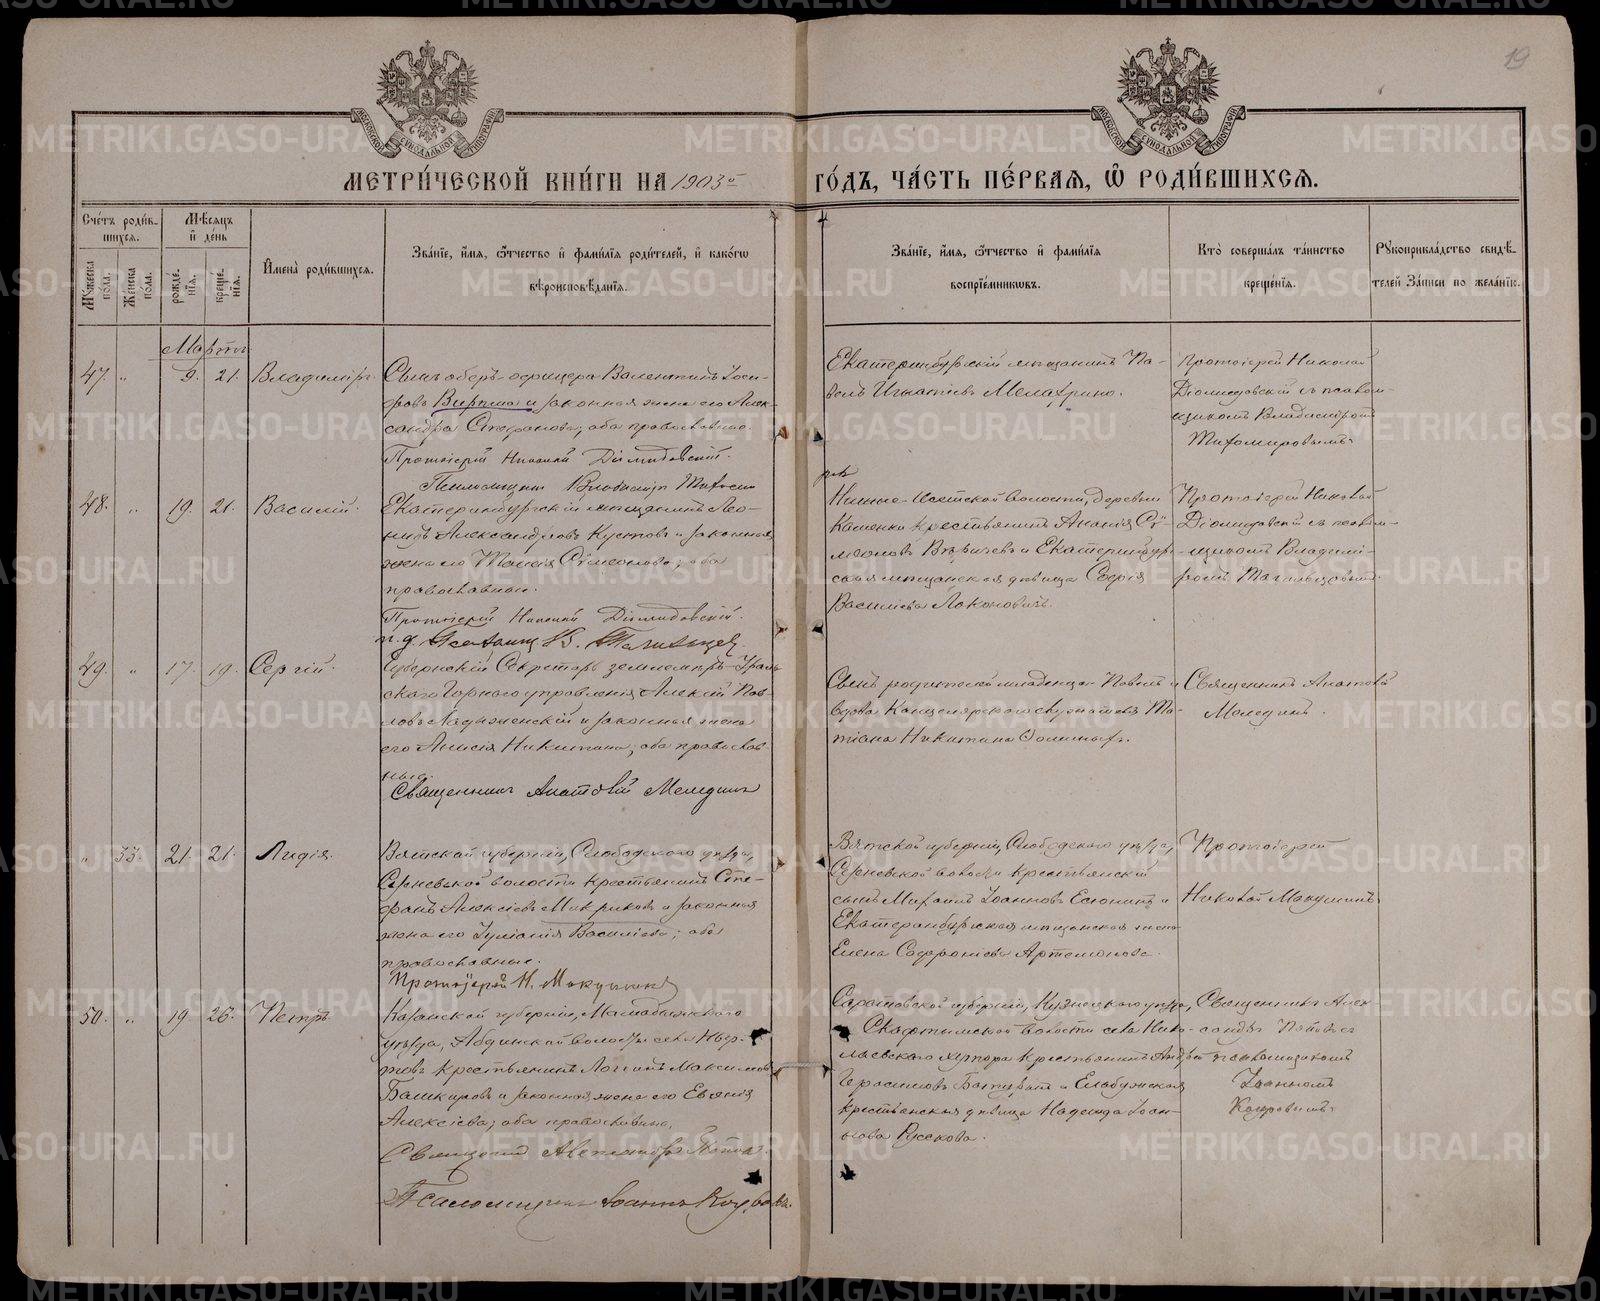 19
МЕТРИ́ЧЕСКОЙ КНИ́ГИ НА 1903й ГО́ДЪ, ЧА́СТЬ ПЕ́РВАЯ, Ѡ РОДИ́ВШИХСЯ.
Сче́тъ роди́вшихся.
Мѣ́сяцъ и де́нь
Му́жеска по́ла.
Же́нска по́ла.
рожде́нїя.
креще́нїя.
И́мена̀ роди́вшихся.
Зва́нїе, и́мя, ѻ́тчество и фами́лїя роди́телей, и како́гѡ
вѣроисповѣ́данїя.
Зва́нїе, и́мя, ѻ́тчество и фами́лїя
воспрїе́мниковъ.
Кто̀ соверша́лъ та́инство
креще́нїя.
Рукоприкла́дство свидѣ́телей за́писи по жела́нїю.
Мартъ
47. " 9. 21. Владиміръ.
Сынъ оберъ-офицера Валентинъ Іоси-
фовъ и законная жена его Алек-
сандра Стефанова; оба православные.
Протоіерей Николай Діомидовскій.
Псаломщикъ Владиміръ
Екатеринбургскій мѣщанинъ Па-
велъ Игнатіевъ
Протоіерей Николай
Діомидовскій съ псалом-
щикомъ Владиміромъ
Тихомировымъ.
48. " 19. 21. Василій.
Екатеринбургскій мѣщанинъ Лео-
нидъ Александровъ Кустовъ и законная
жена его Таисія Сѵмеонова; оба
православные.
Протоіерей Николай Діомидовскій.
Нижне-Исетской волости, деревни
крестьянинъ Ананія Сѵ-
меоновъ и Екатеринбург-
ская мѣщанская дѣвица Софія
Василіева
Протоіерей Николай
Діомидовскій съ псалом-
щикомъ Владимі-
ромъ
49. " 17. 19. Сергій.
Губернскій Секретарь землемѣръ Ураль-
скаго Горнаго управленія Алексій Пав-
ловъ и законная жена
его Анисія Никитина; оба православ-
ные.
Священникъ Анатолій Мелединъ
Сынъ родителей младенца Павелъ и
вдова Канцелярскаго служителя Та-
тіана Никитина
Священникъ Анатолій
Мелединъ.
" 33. 21. 21. Лидія.
Вятской губерніи, Слободского уѣзда,
волости крестьянинъ Сте-
фанъ Алексіевъ и законная
жена его Іуліанія Василіева; оба
православные.
Протоіерей Н. Макушинъ
Вятской губерніи, Слободского уѣзда,
волости крестьянскій
сынъ Михаилъ Іоанновъ и
Екатеринбургская мѣщанская жена
Елена Софроніева Артемонова.
Протоіерей
Николай Макушинъ.
50. " 19 26. Петръ.
Казанской губерніи, Мамадышскаго
уѣзда, Абдинской волости села
крестьянинъ Логгинъ Максимовъ
Башкировъ и законная жена его
Алексіева; оба православные.
Священникъ Александръ Поповъ.
Псаломщикъ Іоаннъ
Саратовской губерніи, Кузнецкаго уѣзда,
волости села Нико-
лаевскаго хутора крестьянинъ Андрей
Герасимовъ и Елабужская
крестьянская дѣвица Надежда Іоан-
нова Русскова.
Священникъ Алек-
сандръ Поповъ съ
псаломщикомъ
Іоанномъ
METRIKI.GASO-URAL.RU